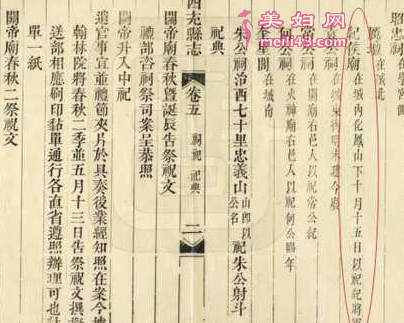 美妇网
meili43.com
厲壇在城北
紀侯廟在城內化鳳山下十月十五日以祀紀將
在城東街明末建今廢
在關廟右邑人以祀常公紀
何公祠在火神廟右邑人以祀何公錫年
在城南
朱公祠治西七十里忠義山山即以祀朱公射斗
公名
祀典
西充縣志 卷五 祠祀 祀典 二
關帝廟春秋暨誕辰告祭祝文
禮部咨祠祭司案呈恭照
關帝升入中祀
官事宣並禮節夾片於具奏後業經知照在案今據
翰林院將春秋二季並五月十三日告祭祝文撰
送部相應刷印黏單通行各直省遵照辦理可也計
單一紙
關帝廟春秋二祭祝文